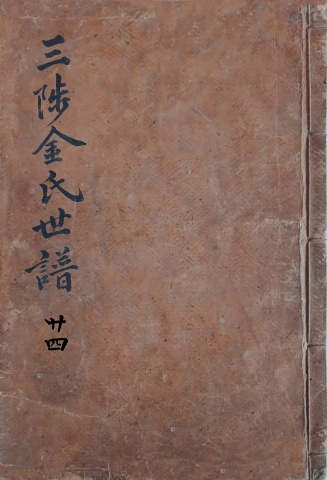 三陟金氏世譜
廿四